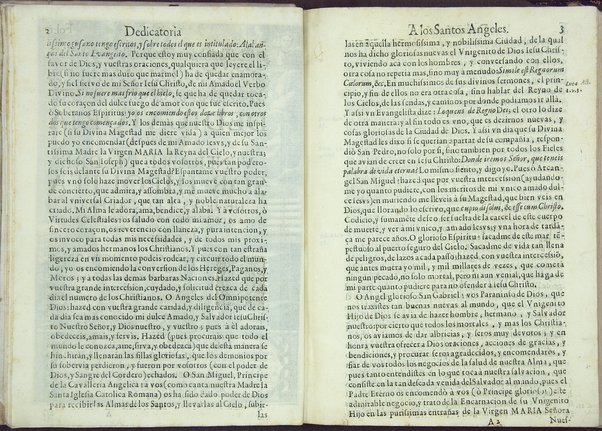 2 Dedicatoria
tengo escritos, y sobre todos el que es intitulado: Alabanças
del Santo Evangelio. Porque estoy muy confiada que con el
favor de Dios, y vuestras oraciones, qualquiera que leyere el libro
(si no fuere mas duro que marmol) ha de quedar enamorado,
y fiel siervo de mi Señor Iesu Christo, de mi Amado el Verbo
Divino. Si no fuere mas frio que el hielo, se que ha de quedar tocado
su coraçon del dulce fuego de amor con que fue escrito. Pues
ô Soberanos Espiritus yo os encomiendo estos doze libros, como todos
los que tengo començados. Y los demas que nuestro Dios me inspirare
(si su Divina Magestad me diere vida) a quien mejor los
puedo yo encomendar (despues de mi Amado Iesvs, y de su Santissima
Madre la Virgen MARIA la Reyna del Cielo, y nuestra;
y dichoso San Ioseph) que a vosotros todos, pues tan poderosos
seis delante su Divina Magestad? Espantame vuestro poder,
pues vno solo haze mover los Cielos, y los mueve con tan grande
concierto, que admira, y assombra, y me mueve mucho a alabar
al vniversal Criador, que tan alta, y noble naturaleza ha
criado. Mi Alma le adora, ama, bendice, y alaba. Y a vosotros, ô
Virtudes Celestiales os saludo con todo mi amor, os amo de
sincero coraçon, os reverencio con llaneza, y pura intencion, y
os invoco para todas mis necessidades, y de todos mis proximos,
y amados hermanos los Christianos. Y pues con tan estraña
ligereza en vn momento podeis rodear, y circuir todo el mundo;
yo os encomiendo la conversion de los Hereges, Paganos, y
Moros: y a todas las demas barbaras Naciones. Hazed que por
vuestra grande intercession, cuydado, y solicitud crezca de cada
dia el numero de los Christianos. O Angeles del Omnipotente
Dios: hazed con vuestra grande caridad, y diligencia, que de cada
dia sea mas conocido mi dulce Amado, y Salvador Iesu Christo
Nuestro Señor, y Dios nuestro, y vuestro; pues â èl adorais,
obedeceis, amais, y servis. Hazed (pues procurais) que todo el
mundo le conozca, ame, sirva, y obedezca) que desta manera se
hincharàn, y llenaràn las sillas gloriosas, que los demonios por
su sobervia perdieron, y fueron por vosotros (con el poder de
Dios, y Sangre del Cordero) echados. O San Miguel, Principe
de la Cavalleria Angelica a vos (como canta nuestra Madre la
Santa Iglesia Catolica Romana) os ha sido dado poder de Dios
para recibir las Almas de los Santos, y llevarlas al Cielo,
las
A los Santos Angeles. 3
las en aquella hermosissima, y nobilissima Ciudad, de la qual
nos ha dicho grandezas el vuestro Vnigenito de Dios Iesu Christo,
viviendo acà con los hombres, y conversando con ellos, y
otra cosa no repetia mas, sino muy a menudo Simile est Regnorum
Cœlorum, &c. En muchissimos de sus divinos sermones, el principio,
y fin de ellos no era otra cosa, sino hablar del Reyno de
los Cielos, de las sendas, y caminos por donde podiamos ir allà.
Y assi vn dia que su Evangelista dize: Loquens de Regno Dei; en otro lo dize
de otra manera; y al fin todo es vno, que es dezirnos nuevas, y
cosas gloriosas de la Ciudad de Dios. Y assi vn dia que su Divina
Magestad les dixo si se querian apartar de su compañia, respondiò
San Pedro, no solo por si, sino tambien por todos los Fieles
que avian de creer en Iesu Christo: Donde iremos Señor, que teneis
palabra de vida eterna? Lo mismo siento, y digo yo. Pues ô Arcangel
San Miguel: hazed que por vuestra intercession (ayudandome
yo quanto pudiere, con los meritos de mi vnico amado dulce
Iesvs) en muriendo me lleveis a su Magestad, que bien veis en
Dios, que llorando lo escrivo, que cupio dissolui, & esse cum Christo,
Codicio, y sumamente desseo ser suelta de la carcel de este cuerpo
de muerte, y ver a mi vnico, y amado Iesvs; y vna hora de tardança
me parece años. O glorioso Espiritu: sacadme de este mar tempestuoso
al puerto seguro del Cielo; Sacadme de vida tan llena
de peligros, de lazos a cada passo; hazed con vuestra intercession,
que antes muera yo mil, y mil millares de vezes, que cometa
ningun pecado, no solo mortal, pero ni aun venial, que haga de
mi parte quanto pudiere en no cometerle.
O Angel glorioso San Gabriel: vos Paraninfo de Dios, que
nos traxistes tan buenas nuevas al mundo, que el Vnigenito
Hijo de Dios se avia de hazer hombre, hermano, y Salvador
nuestro: por cierto que todos los mortales, y mas los Christianos,
os aviamos de dar albricias, y seros muy devotos: y en
honra vuestra ofrecera Dios oraciones, acciones de gracias, y
bendiciones, y procurar seros agradecidos, y encomendaros,
de vos todos los negocios de la salud de nuestras Almas, que
pues tanto entendistes en lo que tocava a nuestra salvacion, que
consiste en la tan deseada venida del Salvador al mundo, pues el
Padre Eterno os encomendò a vos (ô Principe glorioso) este
admirable negocio, y trato de la Encarnacion de su Vnigenito
Hijo en las purissimas entrañas de la Virgen MARIA Señora
A 2 Nues-